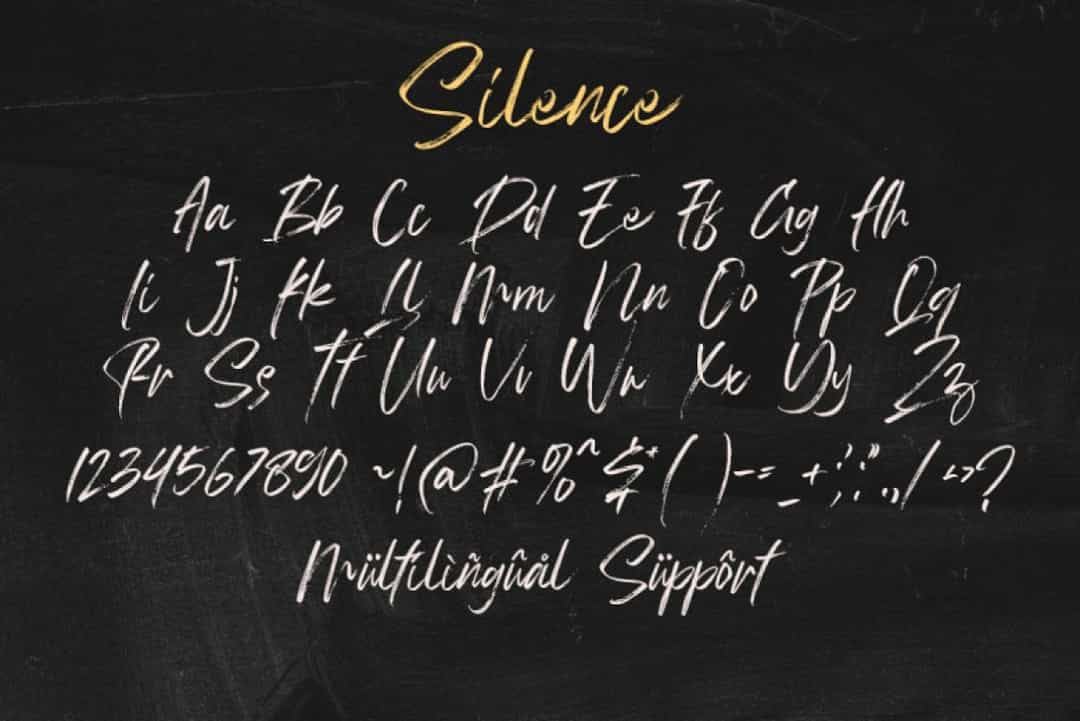 Silence
Aa Bb Cc Dd Ee Ff Gg Hh
Ii Jj Kk Ll Mm Nn Oo Pp Qq
Rr Ss Tt Uu Vv Ww Xx Yy Zz
1234567890 ~!@#%^$*()-= _+;:'",./<>?
Mültilìñgûål Süppôrt